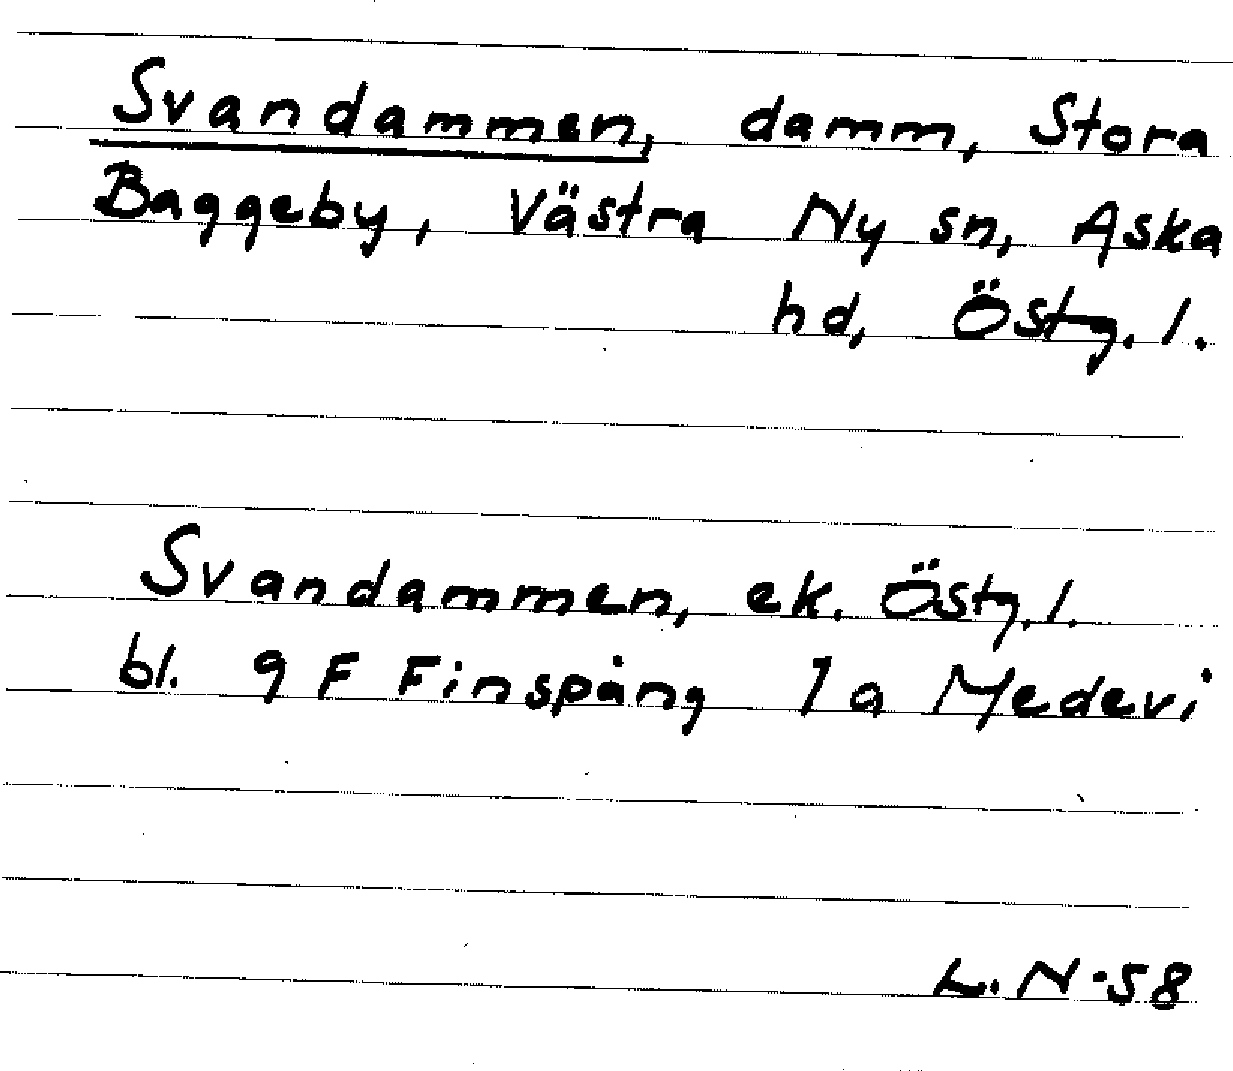 Svandammen, damm, Stora
Baggeby, Västra Ny sn, Aska
hd, Östg. l.
Svandammen, ek. Östg. l.
bl. 9 F Finspång 7 a Medevi
L. N -58